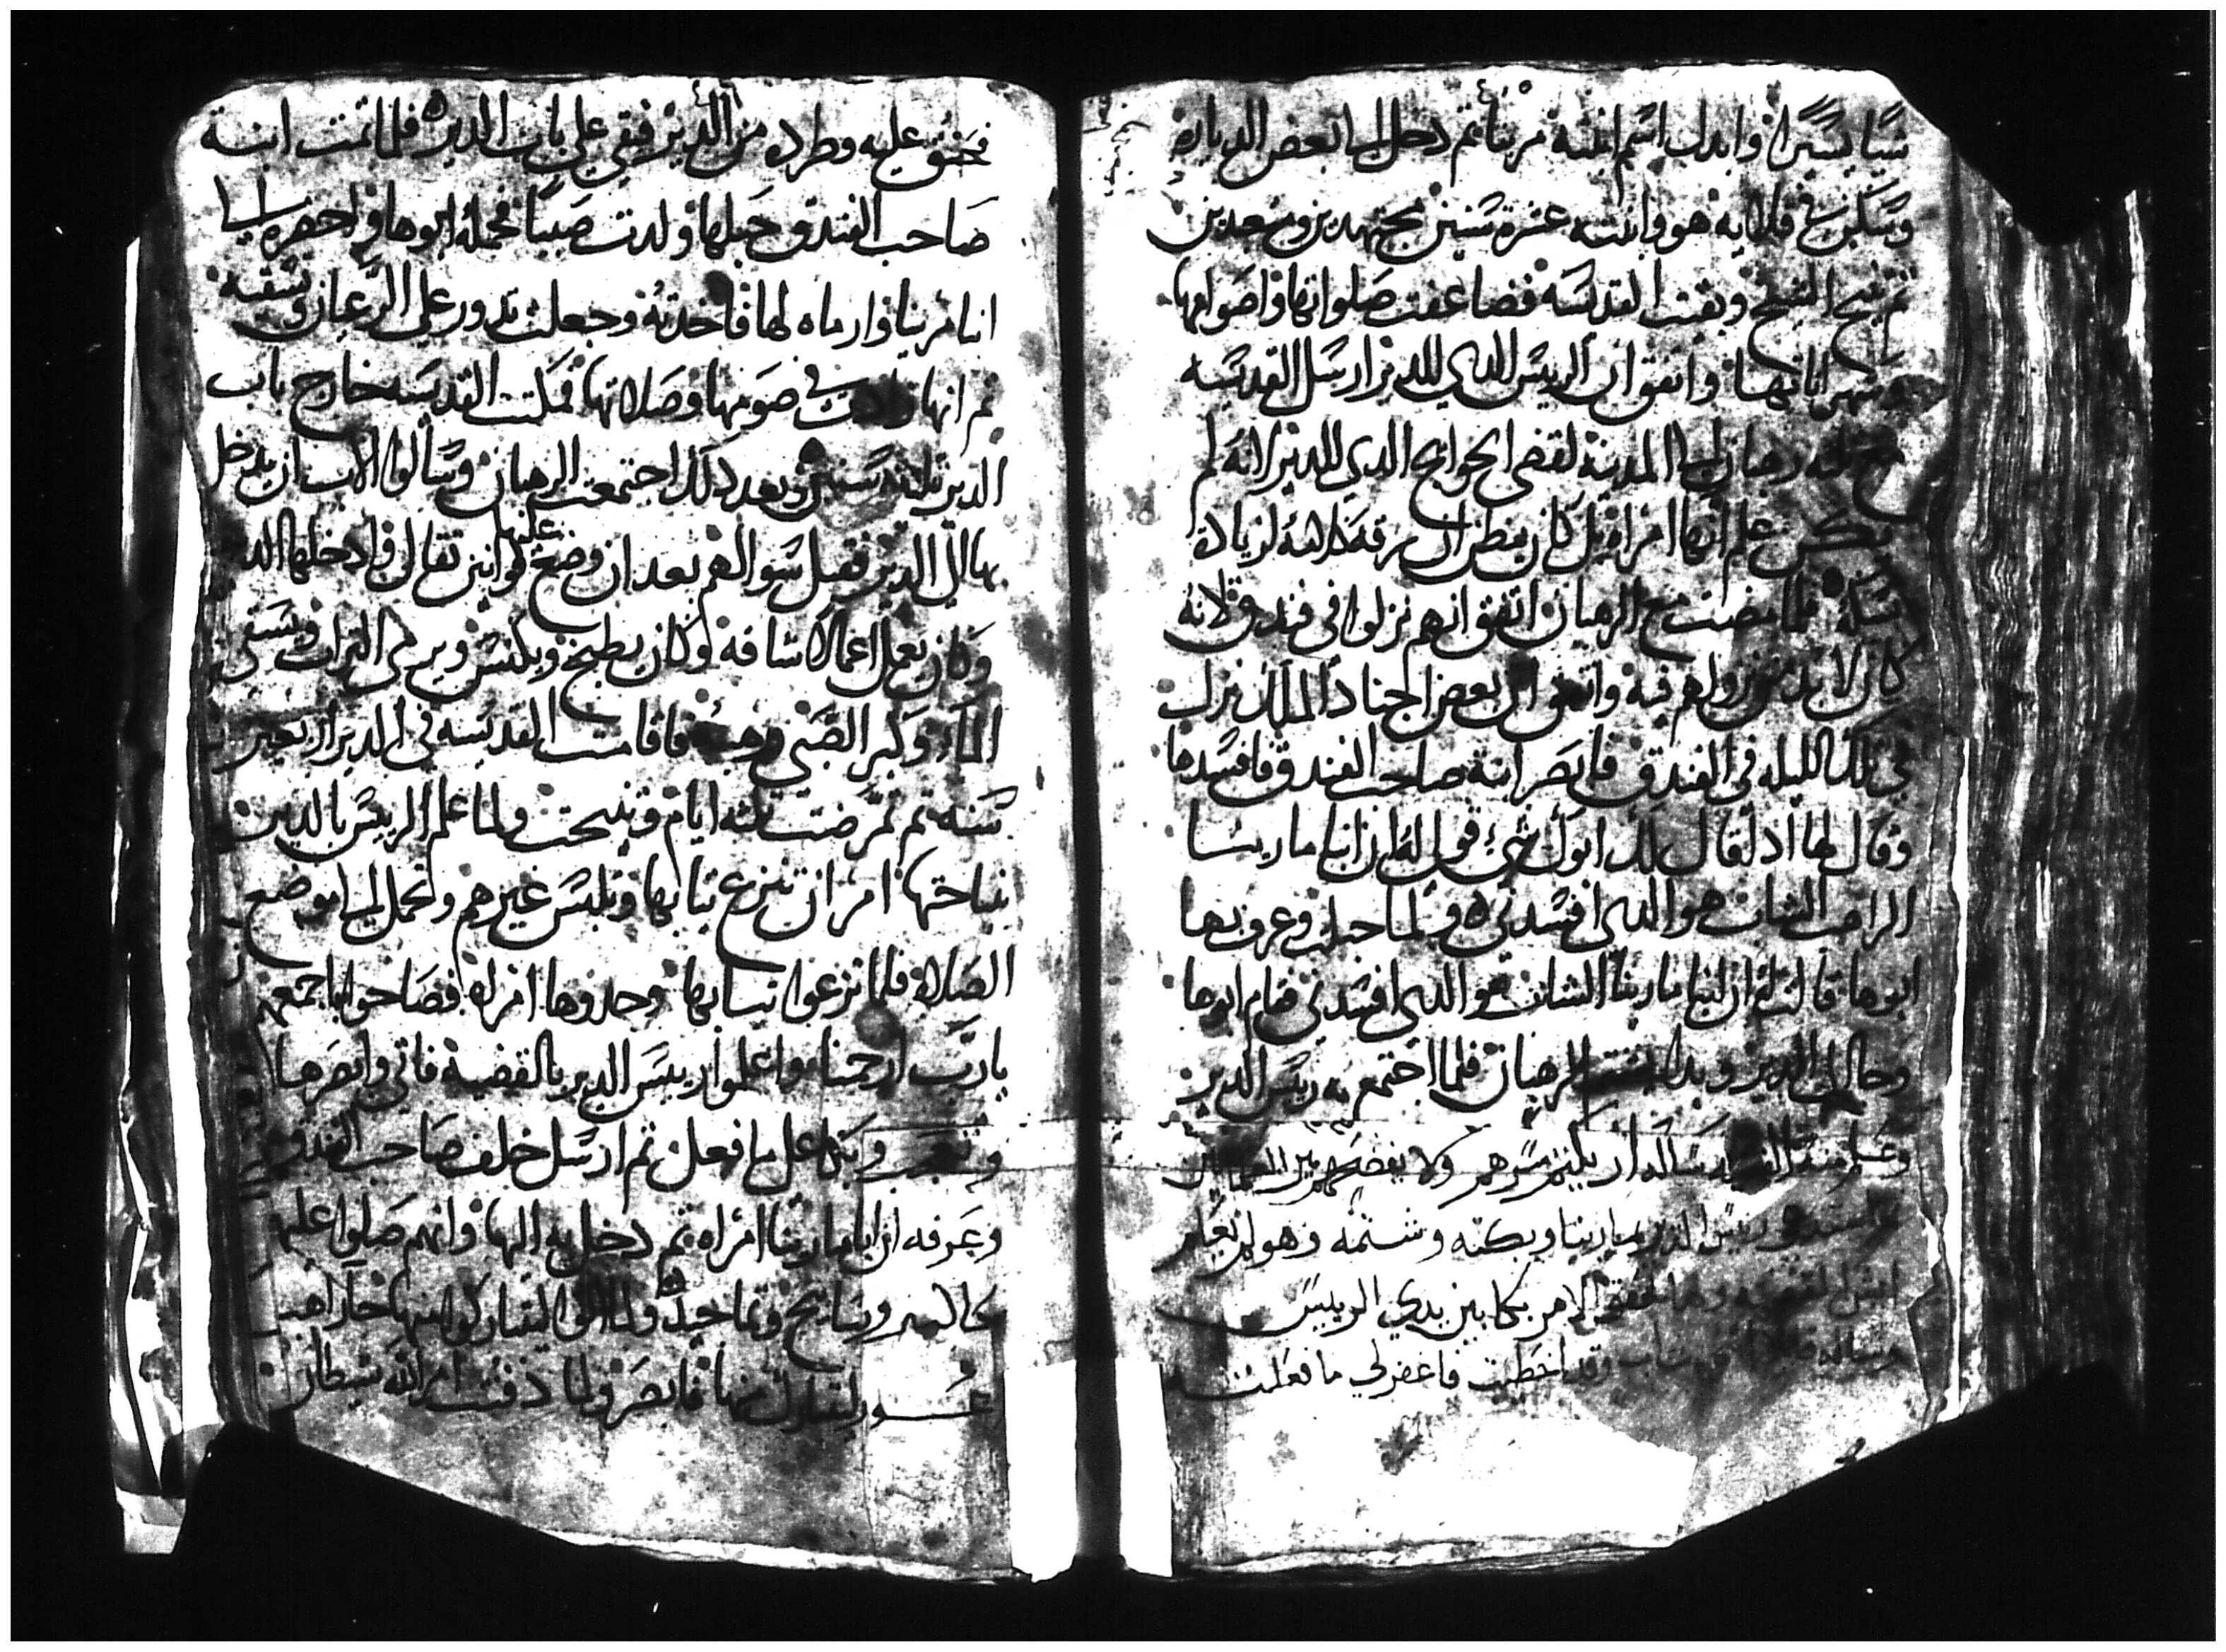 شيا يسيرا وابدل اسم ابنته مرينا ثم دخل الى بعض الديارة
وسكن في قلايه هو وابنته عشرة سنين مجتهدين ومتعبدين
ثم تنيح الشيخ وبقيت القديسه فضاعفت صلواتها واصوامها
واتفق ان الرييس الذي للدير ارسل القديسه
رهبان الى المدينة لقضى الحوايج الذي للدير لانه لم
يكن علم انها امراه بل كان ينظر ان رقة كلامه لزيادة
نسكه فلما مضت مع الرهبان اتفق انهم نزلوا في فندق لانه
كان لا بد من نزولهم فيه واتفق ان بعض اجناد الملك نزل
في تلك الليله في الفندق فابصر ابنة صاحب الفندق فافسدها
وقال لها اذا قال لك ابوك شيء قولي له ان انبا مارينا
الراهب الشاب هو الذي افسدني ولما حبلت وعرف بها
ابوها قالت له ان انبا مارينا الشاب هو الذي افسدني فقام ابوها
وجا الى الدير وبدا الرهبان فلما اجتمع به رييس الدير
وعلم منه القضيه ساله ان يكتم سرهم ولا يفضحهم بين العلمانيين
رييس الدير مارينا وبكته وشتمه وهو لم يعلم
الامر بكا بين يدي الرييس
شاب وقد اخطيت فاغفر لي ما فعلت
٤٨٦
فحنق عليه وطرده من الدير فبقي على باب الدير فلما تمت ابنة
صاحب الفندق حبلها ولدت صبيا فحمله ابوها واحضره الى
انبا مرينا وارماه لها فاخدته وجعلت تدور على الرعاز وتسقيه
ثم انها زادت في صومها وصلاتها فمكتت القديسه خارج باب
الدير تلته سنين وبعد ذلك اجتمعت الرهبان وسالوا الاب ان يدخل
بها الى الدير فقبل سوالهم بعد ان وضع عليها قوانين تقال وادخلها الد
وكان يعمل اعمالا شاقه وكان يطبخ ويكنس ويرمى التراب ويسقى
الماء وكبر الصبي فاقامت القديسه في الدير اربعين
سنه ثم تمرضت تلته ايام وتنيحت ولما علم الرييس بالدير
نياحتها امر ان تنزع تيابها وتلبس غيرهم وتحمل الى موضع
الصلاة فلما نزعوا تيابها وجدوها امراه فصاحوا باجمعهم
يارب ارحمنا واعلموا رييس الدير بالقضية فاتى وابصرها
وتعجب وبكا على ما فعل ثم ارسل خلف صاحب الفندق
وعرفه ان انبا مارينا امراه ثم دخل به اليها وانهم صلوا عليه
وتسابيح وتماجيد ولما اتوا ليتباركوا منها جا راهب
ليتبارك منها فابصر ولما دفنت امر الله شيطان